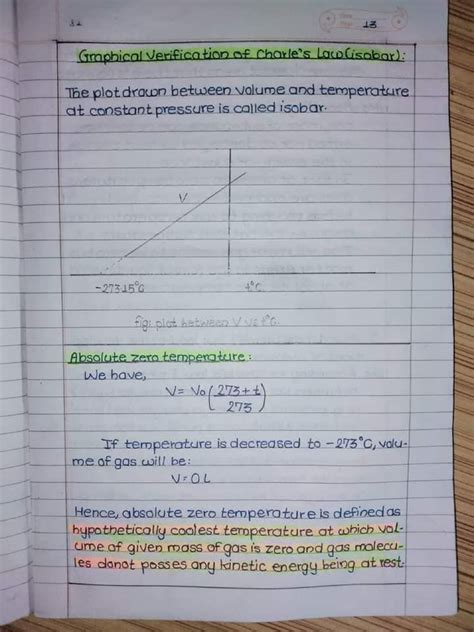 13
Graphical Verification of Charle's Law(isobar):
The plot drawn between volume and temperature
at constant pressure is called isobar.
V
-273.15°C
t°C
fig: plot between V vs t°C.
Absolute zero temperature:
We have,
V = V₀(273+t/273)
If temperature is decreased to -273°C, volu-
me of gas will be:
V=0L
Hence, absolute zero temperature is defined as
hypothetically coolest temperature at which vol-
ume of given mass of gas is zero and gas molecu-
les donot posses any kinetic energy being at rest.